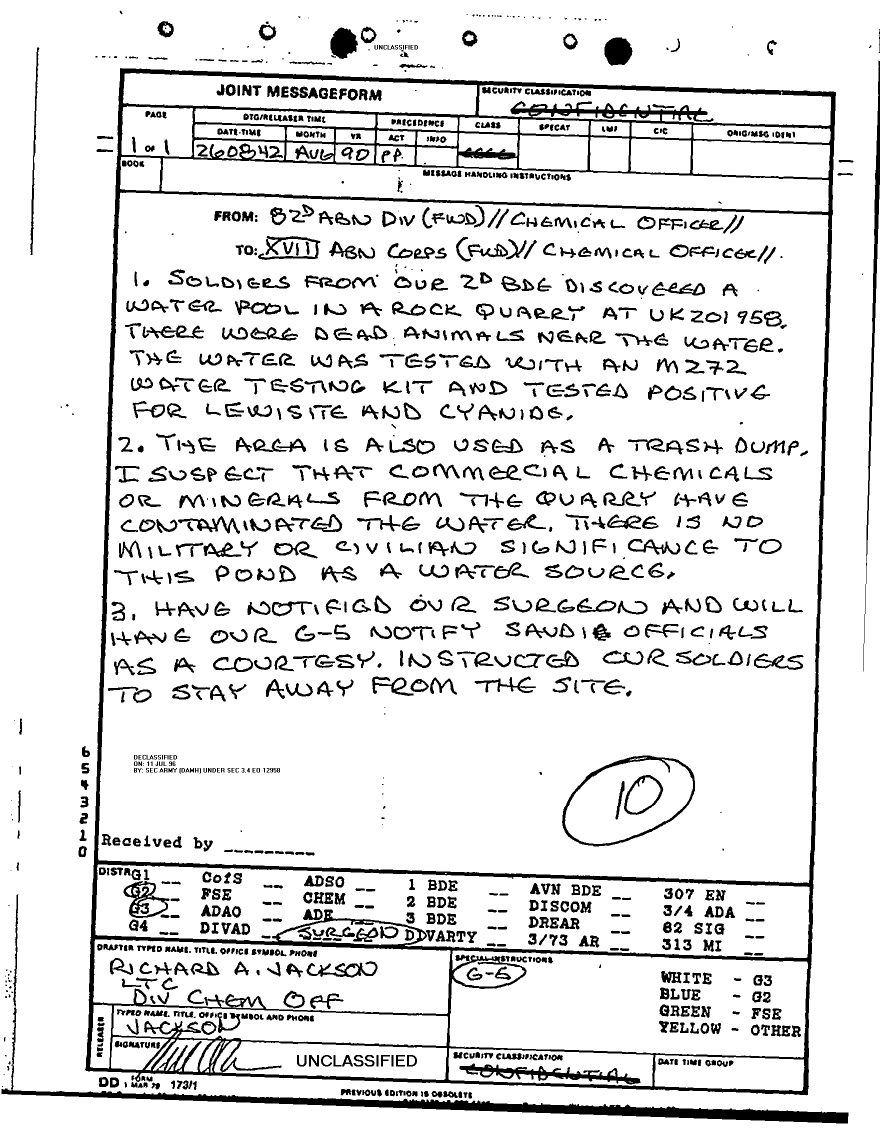 UNCLASSIFIED
JOINT MESSAGEFORM
SECURITY CLASSIFICATION
CONFIDENTIAL
PAGE
DTG/RELEASER TIME
PRECEDENCE
CLASS
SPECAT
LMF
CIC
ORIG/MSG IDENT
DATE-TIME
MONTH
YR
ACT
INFO
1 OF 1
260842
AUG
90
PP
BOOK
MESSAGE HANDLING INSTRUCTIONS
FROM: 82D ABN DIV (FWD)//CHEMICAL OFFICER//
TO: XVIII ABN CORPS (FWD)//CHEMICAL OFFICER//
1. SOLDIERS FROM OUR 2D BDE DISCOVERED A
WATER POOL IN A ROCK QUARRY AT UK201958.
THERE WERE DEAD ANIMALS NEAR THE WATER.
THE WATER WAS TESTED WITH AN M272
WATER TESTING KIT AND TESTED POSITIVE
FOR LEWISITE AND CYANIDE.
2. THE AREA IS ALSO USED AS A TRASH DUMP.
I SUSPECT THAT COMMERCIAL CHEMICALS
OR MINERALS FROM THE QUARRY HAVE
CONTAMINATED THE WATER. THERE IS NO
MILITARY OR CIVILIAN SIGNIFICANCE TO
THIS POND AS A WATER SOURCE.
3. HAVE NOTIFIED OUR SURGEON AND WILL
HAVE OUR G-5 NOTIFY SAUDI OFFICIALS
AS A COURTESY. INSTRUCTED OUR SOLDIERS
TO STAY AWAY FROM THE SITE.
6
5
4
3
2
1
0
DECLASSIFIED
ON: 11 JUL 96
BY: SEC ARMY (DAMH) UNDER SEC 3.4 EO 12958
10
Received by _________
DISTR G1 __ CofS __ ADSO __ 1 BDE __ AVN BDE __ 307 EN __
G2 __ FSE __ CHEM __ 2 BDE __ DISCOM __ 3/4 ADA __
G3 __ ADAO __ ADE __ 3 BDE __ DREAR __ 82 SIG __
G4 __ DIVAD __ SURGEON DIVARTY __ 3/73 AR __ 313 MI __
DRAFTER TYPED NAME, TITLE, OFFICE SYMBOL, PHONE
RICHARD A. JACKSON
LTC
DIV CHEM OFF
SPECIAL INSTRUCTIONS
G-5
WHITE - G3
BLUE - G2
GREEN - FSE
YELLOW - OTHER
RELEASER
TYPED NAME, TITLE, OFFICE SYMBOL AND PHONE
JACKSON
SIGNATURE
UNCLASSIFIED
SECURITY CLASSIFICATION
CONFIDENTIAL
DATE TIME GROUP
DD FORM 1 MAR 79 173/1
PREVIOUS EDITION IS OBSOLETE